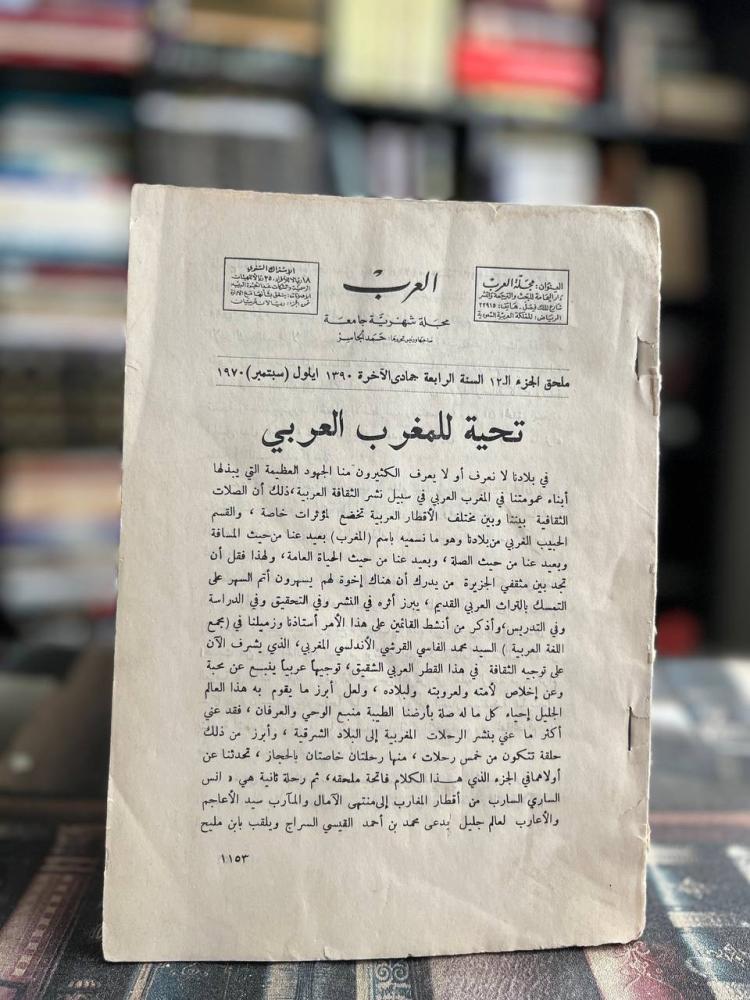 العرب
مجلة شهرية جامعة
صاحبها ورئيس تحريرها: حمد الجاسر
العنوان: مجلة العرب
دار اليمامة للبحث والترجمة والنشر
شارع الملك فيصل، هاتف: ٢٢٩١٥
الرياض: المملكة العربية السعودية
الاشتراك السنوي
ملحق الجزء الـ١٢ السنة الرابعة جمادى الآخرة ١٣٩٠ ايلول (سبتمبر) ١٩٧٠
تحية للمغرب العربي
في بلادنا لا نعرف أو لا يعرف الكثيرون منا الجهود العظيمة التي يبذلها
أبناء عمومتنا في المغرب العربي في سبيل نشر الثقافة العربية، ذلك أن الصلات
الثقافية بيننا وبين مختلف الأقطار العربية تخضع لمؤثرات خاصة ، والقسم
الحبيب الغربي من بلادنا وهو ما نسميه باسم (المغرب) بعيد عنا من حيث المسافة
وبعيد عنا من حيث الصلة ، وبعيد عنا من حيث الحياة العامة، ولهذا فقل أن
تجد بين مثقفي الجزيرة من يدرك أن هناك إخوة لهم يسهرون أتم السهر على
التمسك بالتراث العربي القديم ، يبرز أثره في النشر وفي التحقيق وفي الدراسة
وفي التدريس، وأذكر من أنشط القائمين على هذا الأمر أستاذنا وزميلنا في (مجمع
اللغة العربية ) السيد محمد الفاسي القرشي الأندلسي المغربي، الذي يشرف الآن
على توجيه الثقافة في هذا القطر العربي الشقيق، توجيهاً عربياً ينبع عن محبة
وعن إخلاص لأمته ولعروبته ولبلاده ، ولعل أبرز ما يقوم به هذا العالم
الجليل إحياء كل ما له صلة بأرضنا الطيبة منبع الوحي والعرفان ، فقد عني
أكثر ما عني بنشر الرحلات المغربية إلى البلاد الشرقية ، وأبرز من ذلك
حلقة تتكون من خمس رحلات ، منها رحلتان خاصتان بالحجاز ، تحدثنا عن
أولاهما في الجزء الذي هـذا الكلام فاتحة ملحقه، ثم رحلة ثانية هي « انس
الساري السارب من أقطار المغارب إلى منتهى الآمال والمآرب سيد الأعاجم
والأعارب لعالم جليل يدعى محمد بن أحمد القيسي السراج ويلقب بابن مليح
١١٥٣